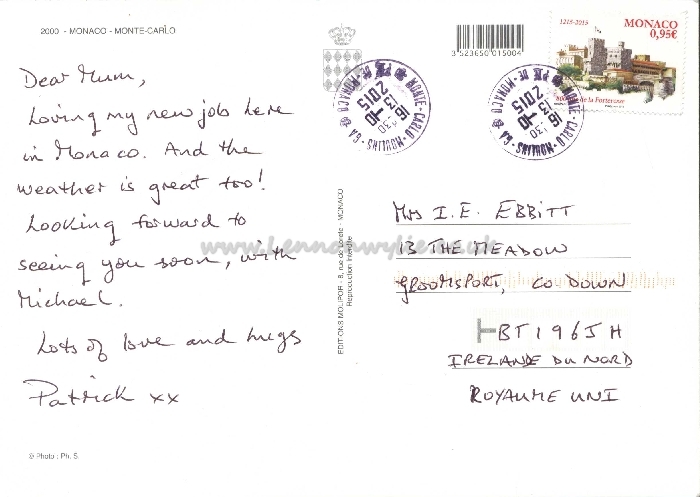 2000 - MONACO - MONTE-CARLO
Dear Mum,
Loving my new job here
in Monaco. And the
weather is great too!
Looking forward to
seeing you soon, with
Michael.
Lots of love and hugs
Patrick xx
© Photo : Ph. S.
EDITIONS MOLIPOR - 8, rue de Lorète - MONACO
Reproduction interdite
3523650150004
MONTE-CARLO-MOULINS-CA
PPAL DE MONACO
16 H 30
13-10
2015
MONTE-CARLO-MOULINS-CA
16 H 30
13-10
2015
1215-2015
MONACO
0,95€
de la Forteresse
Mrs I. E. EBBITT
13 THE MEADOW
GROOMSPORT, CO DOWN
BT19 6JH
IRELANDE DU NORD
ROYAUME UNI
www.Lennonwylie.co.uk